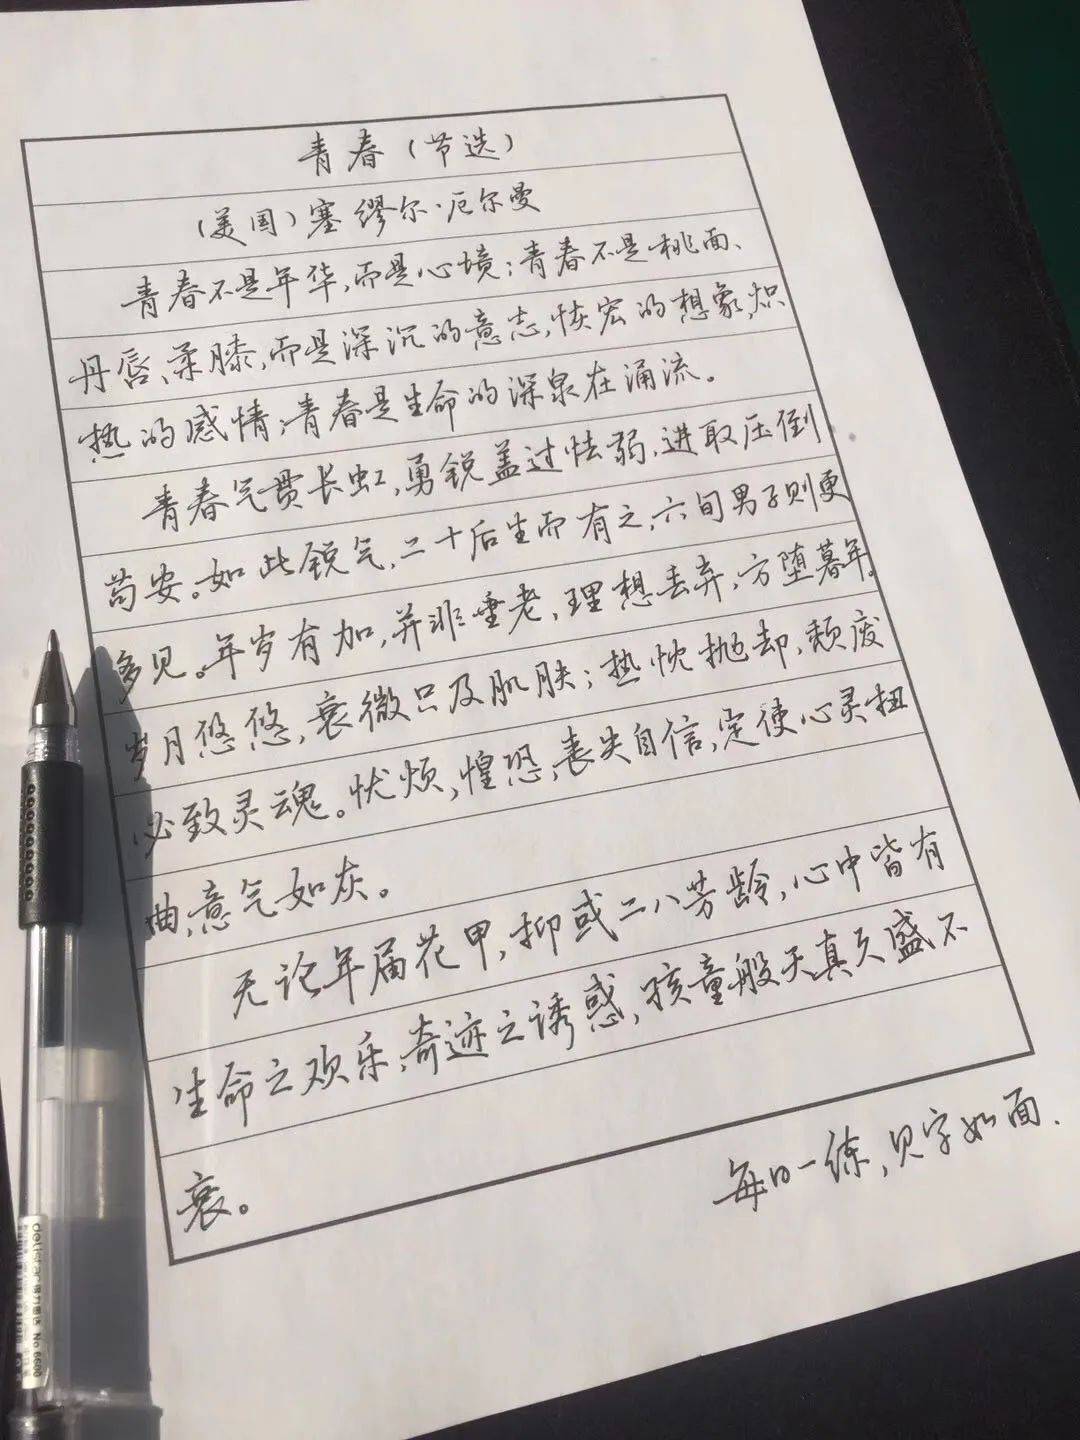 青春(节选)
(美国)塞缪尔·厄尔曼
青春不是年华,而是心境;青春不是桃面、
丹唇、柔膝,而是深沉的意志,恢宏的想象,炽
热的感情;青春是生命的深泉在涌流。
青春气贯长虹,勇锐盖过怯弱,进取压倒
苟安。如此锐气,二十后生而有之,六旬男子则更
多见。年岁有加,并非垂老,理想丢弃,方堕暮年。
岁月悠悠,衰微只及肌肤;热忱抛却,颓废
必致灵魂。忧烦,惶恐,丧失自信,定使心灵扭
曲,意气如灰。
无论年届花甲,抑或二八芳龄,心中皆有
生命之欢乐,奇迹之诱惑,孩童般天真久盛不
衰。
每日一练,见字如面.
deli
No.6600